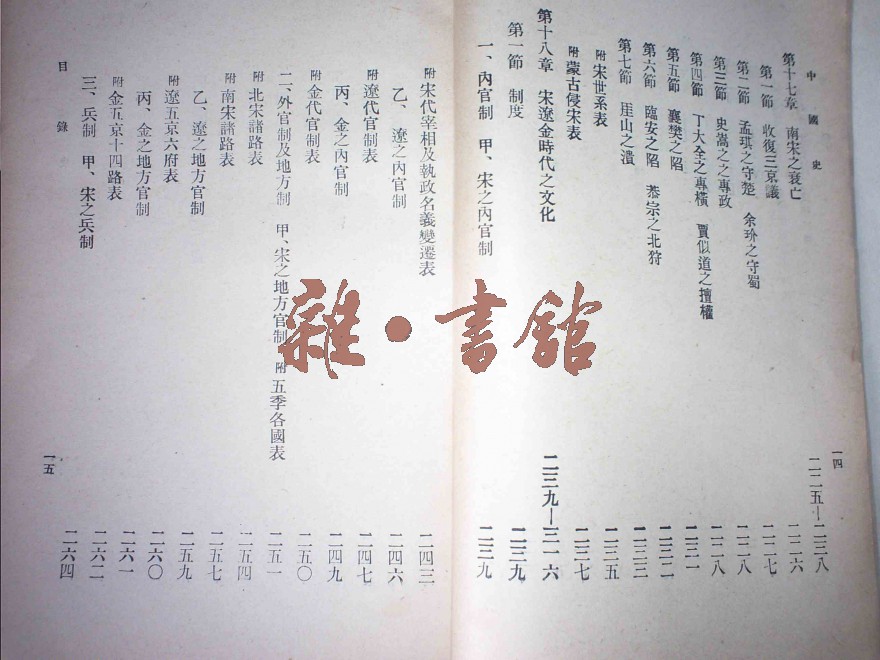 中國史
一四
第十七章 南宋之衰亡 二二五—二三八
第一節 收復三京議 二二六
第二節 孟琪之守楚 余玠之守蜀 二二七
第三節 史嵩之之專政 二二八
第四節 丁大全之專橫 賈似道之擅權 二二八
第五節 襄樊之陷 二三一
第六節 臨安之陷 恭宗之北狩 二三二
第七節 厓山之潰 二三三
附宋世系表 二三五
附蒙古侵宋表 二三七
第十八章 宋遼金時代之文化 二三九—三一六
第一節 制度 二三九
一、內官制 甲、宋之內官制 二三九
附宋代宰相及執政名義變遷表 二四三
乙、遼之內官制 二四六
附遼代官制表 二四七
丙、金之內官制 二四九
附金代官制表 二五〇
二、外官制及地方制 甲、宋之地方官制 附五季各國表 二五一
附北宋諸路表 二五四
附南宋諸路表 二五七
乙、遼之地方官制 二五九
附遼五京六府表 二六〇
丙、金之地方官制 二六一
附金五京十四路表 二六二
三、兵制 甲、宋之兵制 二六四
目錄
一五
雜•書館